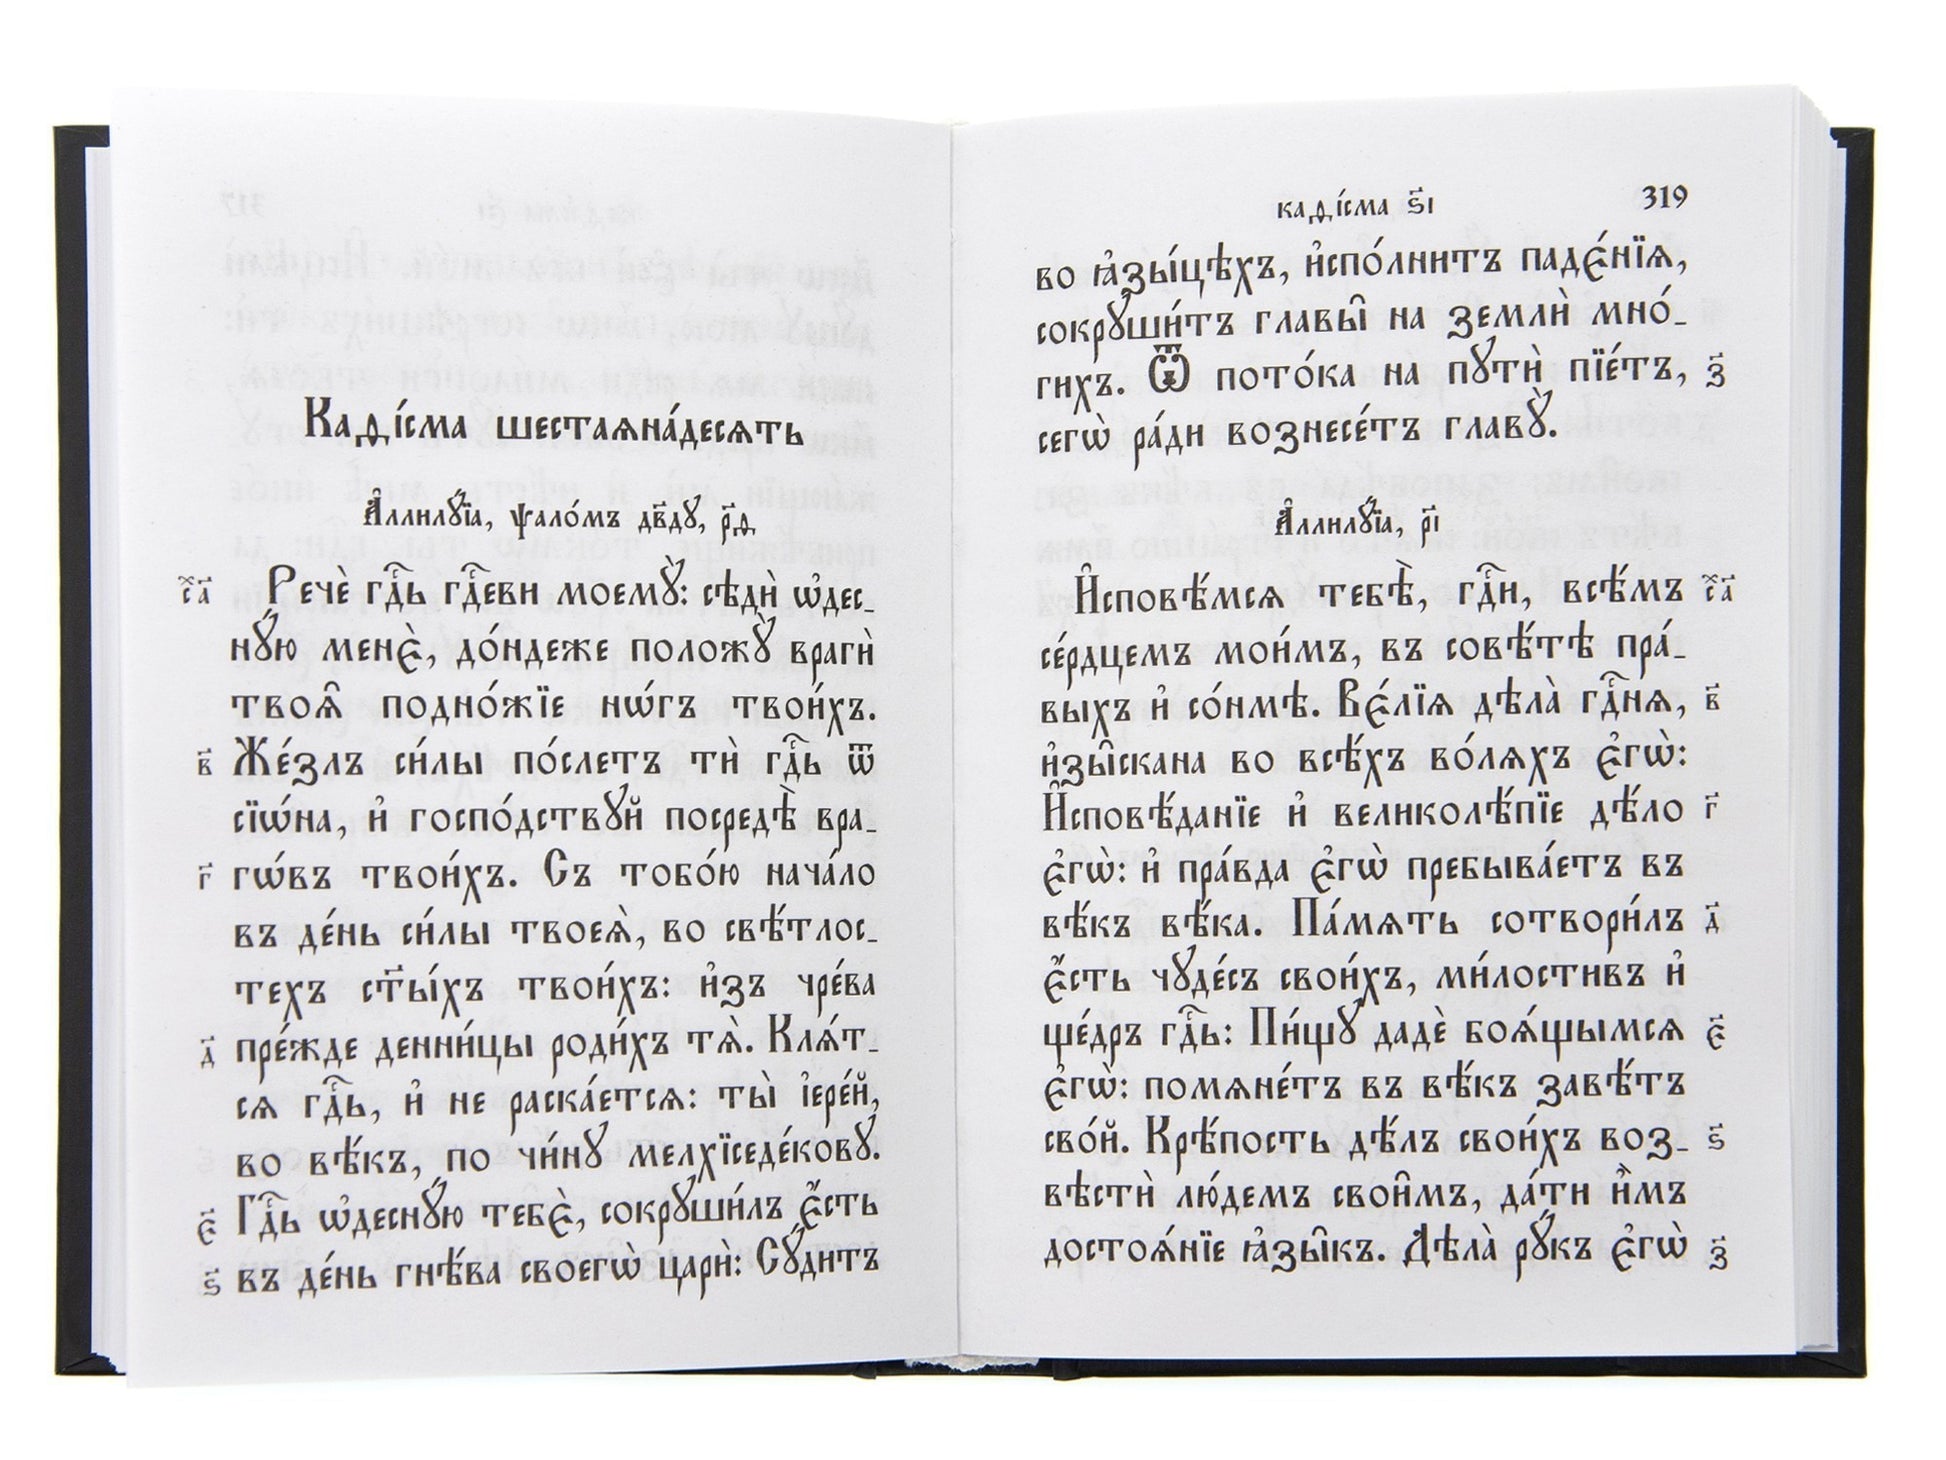 Каѳі́сма шестаѧна́десѧть
А҆ллилꙋ́їа, ѱало́мъ дв҃дꙋ, р҃ѳ
х҃с а҃ Речѐ гдⷭ҇ь гдⷭ҇еви моемꙋ̀: сѣдѝ ѡ҆дес_
нꙋ́ю менѐ, до́ндеже положꙋ̀ врагѝ
твоѧ̑ подно́жїе нѡ́гъ твои́хъ.
в҃ Же́злъ си́лы по́слетъ тѝ гдⷭ҇ь ѿ
сїѡ́на, и҆ госпо́дствꙋй посредѣ̀ вра_
г҃ гѡ́въ твои́хъ. Съ тобо́ю нача́ло
въ де́нь си́лы твоеѧ̀, во свѣ́тлос_
техъ ст҃ы́хъ твои́хъ: и҆зъ чре́ва
д҃ пре́жде денни́цы роди́хъ тѧ̀. Клѧ́т_
сѧ гдⷭ҇ь, и҆ не раска́етсѧ: ты̀ і҆ере́й,
во вѣ́къ, по чи́нꙋ мелхїседе́ковꙋ.
є҃ Гдⷭ҇ь ѡ҆деснꙋ́ю тебѐ, сокрꙋши́лъ є҆́сть
ѕ҃ въ де́нь гнѣ́ва своегѡ̀ царѝ: Сꙋ́дитъ
каѳі́сма ѕ҃і 319
во ꙗ҆зы́цѣхъ, и҆спо́лнитъ паде́нїѧ,
сокрꙋши́тъ главы̑ на землѝ мно́_
гихъ. Ѿ пото́ка на пꙋтѝ пїе́тъ, з҃
сегѡ̀ ра́ди вознесе́тъ главꙋ̀.
А҆ллилꙋ́їа, р҃і
И҆сповѣ́мсѧ тебѣ̀, гдⷭ҇и, всѣ́мъ х҃с а҃
се́рдцемъ мои́мъ, въ совѣ́тѣ пра́_
выхъ и҆ со́нмѣ. Ве́лїѧ дѣла̀ гдⷭ҇нѧ, в҃
и҆зы̑скана во всѣ́хъ во́лѧхъ є҆гѡ̀:
И҆сповѣ́данїе и҆ великолѣ́пїе дѣ́ло г҃
є҆гѡ̀: и҆ пра́вда є҆гѡ̀ пребыва́етъ въ
вѣ́къ вѣ́ка. Па́мѧть сотвори́лъ д҃
є҆́сть чꙋде́съ свои́хъ, ми́лостивъ и҆
ще́дръ гдⷭ҇ь: Пи́щꙋ дадѐ боѧ́щымсѧ є҃
є҆гѡ̀: помѧне́тъ въ вѣ́къ завѣ́тъ
сво́й. Крѣ́пость дѣ́лъ свои́хъ воз_ ѕ҃
вѣстѝ лю́демъ свои̑мъ, да́ти и҆̀мъ
достоѧ́нїе ꙗ҆зы̑къ. Дѣла̀ рꙋ́къ є҆гѡ̀ з҃